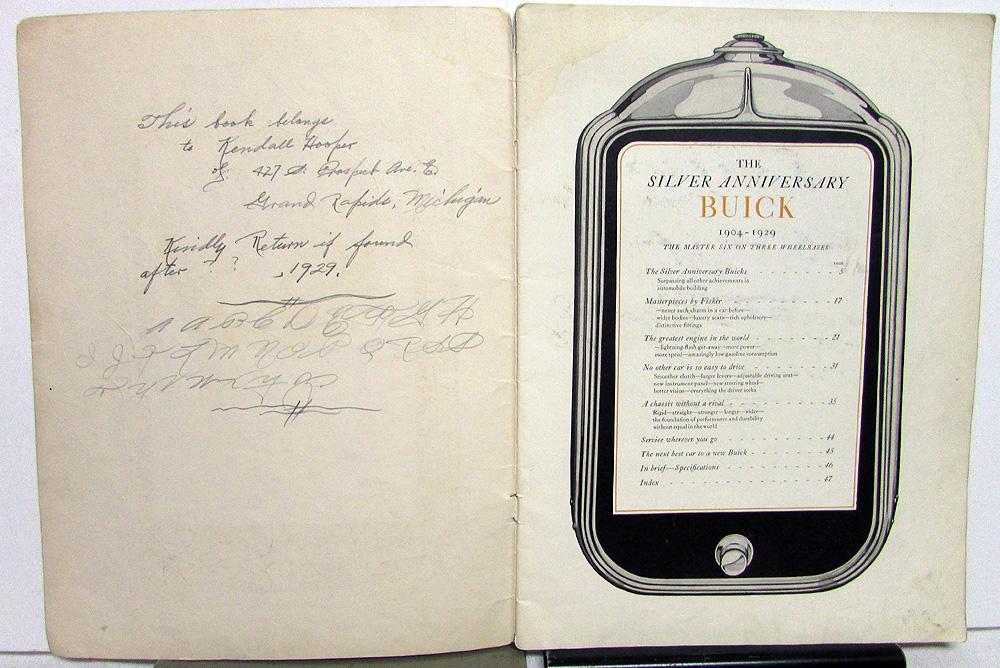 This book belongs
to Kendall Hooper
of 427 Prospect Ave.
Grand Rapids, Michigan
Kindly Return if found
after ? ? , 1929.
THE
SILVER ANNIVERSARY
BUICK
1904-1929
THE MASTER SIX ON THREE WHEELBASES
PAGE
The Silver Anniversary Buicks - - - - - - - 5
Surpassing all other achievements in
automobile building
Masterpieces by Fisher - - - - - - - - - - 17
—never such charm in a car before—
wider bodies—luxury seats—rich upholstery—
distinctive fittings
The greatest engine in the world - - - - - - - 21
—lightning-flash get-away—more power—
more speed—amazingly low gasoline consumption
No other car is so easy to drive - - - - - - - 31
Smoother clutch—larger levers—adjustable driving seat—
new instrument panel—new steering wheel—
better vision—everything the driver seeks
A chassis without a rival - - - - - - - - - 35
Rigid—straight—stronger—longer—wider—
the foundation of performance and durability
without equal in the world
Service wherever you go - - - - - - - - - 44
The next best car to a new Buick - - - - - - - 45
In brief—Specifications - - - - - - - - - 46
Index - - - - - - - - - - - - - 47